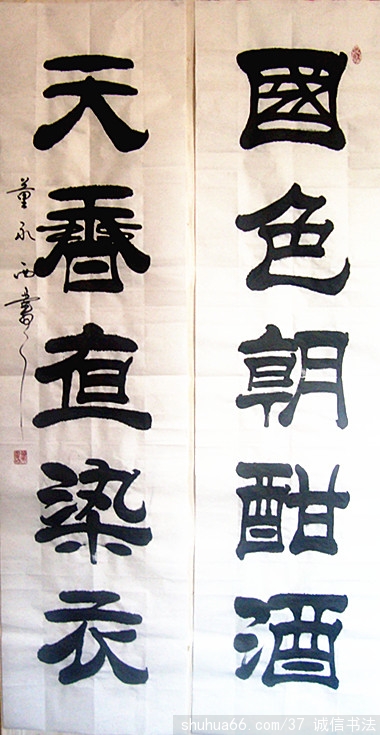 國色朝酣酒
天香直染衣
董永西書
shuhua66.com/37 诚信书法